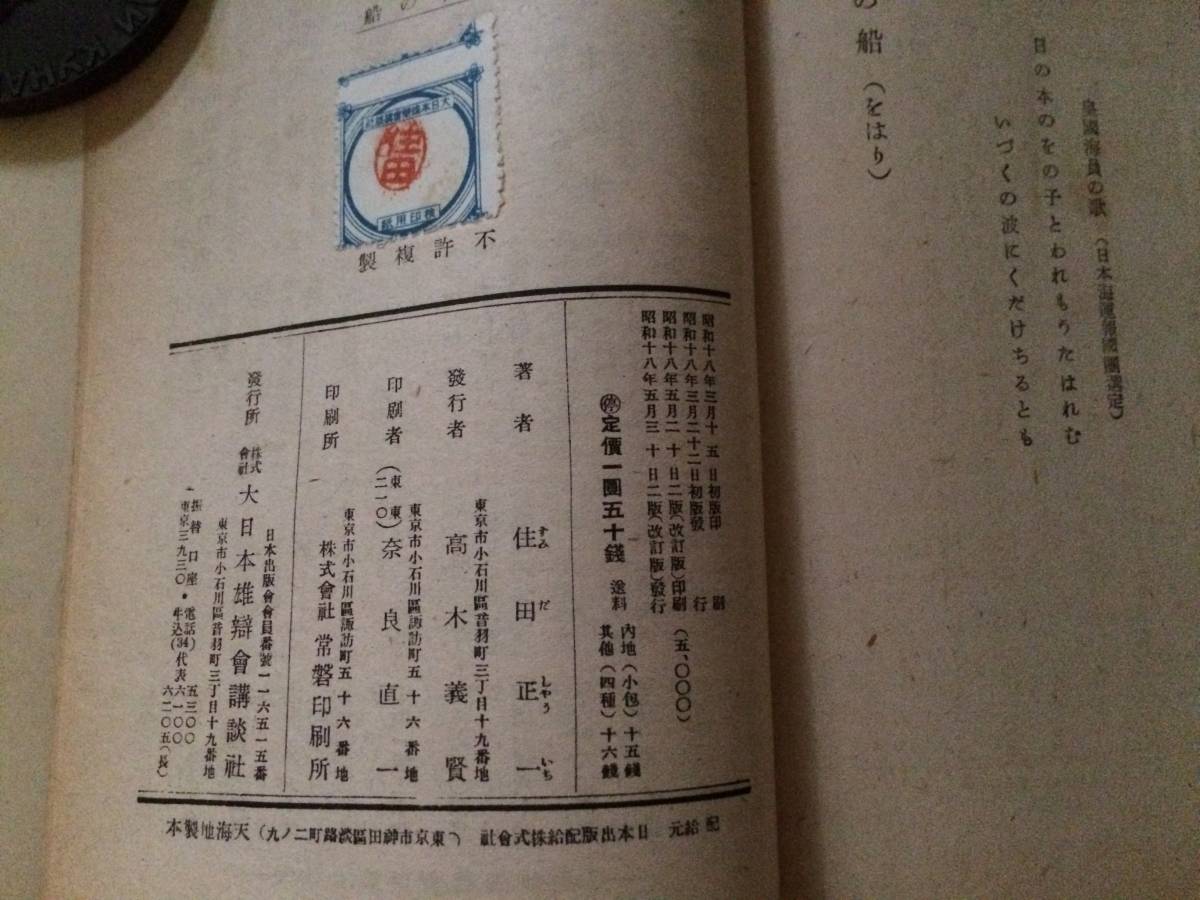 皇國海員の歌
日の本のをの子とわれもうたはれむ
いづくの波にくだけちるとも
の船（をはり）
の船
大日本雄辯會講談社
住田
檢印用紙
不許複製
昭和十八年三月十五日初版印刷
昭和十八年三月二十二日初版發行
昭和十八年五月二十日二版（改訂版）印刷
昭和十八年五月三十日二版（改訂版）發行
（五、〇〇〇）
㊡定價一圓五十錢
送料
內地（小包）十五錢
其他（四種）十六錢
著者 住田正一
すみ だ しやう いち
東京市小石川區音羽町三丁目十九番地
發行者 高木義賢
東京市小石川區諏訪町五十六番地
印刷者（東東二一〇）奈良直一
東京市小石川區諏訪町五十六番地
印刷所 株式會社 常磐印刷所
日本出版會會員番號一一六五一五番
發行所 株式會社 大日本雄辯會講談社
東京市小石川區音羽町三丁目十九番地
振替口座・電話
東京三九三〇・牛込(34)代表
五三〇〇
六一〇〇
六二〇五(長)
配給元 日本出版配給株式會社（東京市神田區淡路町二ノ九）天海地製本